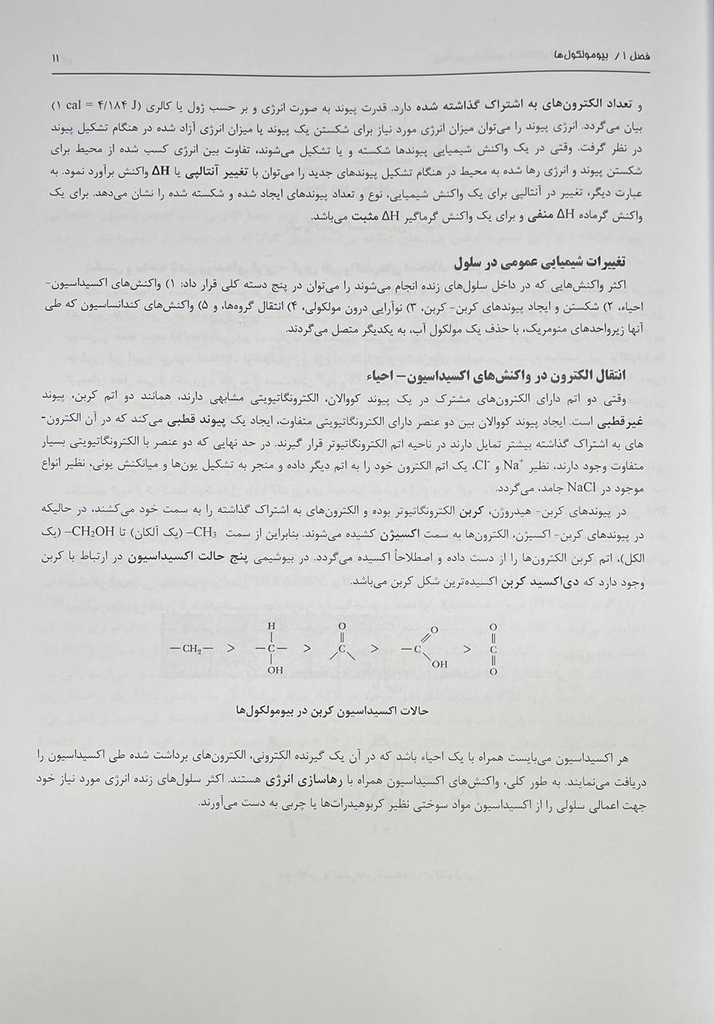 فصل ۱ / بیومولکول‌ها ۱۱
و تعداد الکترون‌های به اشتراک گذاشته شده دارد. قدرت پیوند به صورت انرژی و بر حسب ژول یا کالری (۱ cal = ۴/۱۸۴ J)
بیان می‌گردد. انرژی پیوند را می‌توان میزان انرژی مورد نیاز برای شکستن یک پیوند یا میزان انرژی آزاد شده در هنگام تشکیل پیوند
در نظر گرفت. وقتی در یک واکنش شیمیایی پیوندها شکسته و یا تشکیل می‌شوند، تفاوت بین انرژی کسب شده از محیط برای
شکستن پیوند و انرژی رها شده به محیط در هنگام تشکیل پیوندهای جدید را می‌توان با تغییر آنتالپی یا ΔH واکنش برآورد نمود. به
عبارت دیگر، تغییر در آنتالپی برای یک واکنش شیمیایی، نوع و تعداد پیوندهای ایجاد شده و شکسته شده را نشان می‌دهد. برای یک
واکنش گرماده ΔH منفی و برای یک واکنش گرماگیر ΔH مثبت می‌باشد.
تغییرات شیمیایی عمومی در سلول
اکثر واکنش‌هایی که در داخل سلول‌های زنده انجام می‌شوند را می‌توان در پنج دسته کلی قرار داد: ۱) واکنش‌های اکسیداسیون-
احیاء، ۲) شکستن و ایجاد پیوندهای کربن- کربن، ۳) نوآرایی درون مولکولی، ۴) انتقال گروه‌ها، و ۵) واکنش‌های کندانساسیون که طی
آنها زیرواحدهای منومریک، با حذف یک مولکول آب، به یکدیگر متصل می‌گردند.
انتقال الکترون در واکنش‌های اکسیداسیون– احیاء
وقتی دو اتم دارای الکترون‌های مشترک در یک پیوند کووالان، الکترونگاتیویتی مشابهی دارند، همانند دو اتم کربن، پیوند
غیرقطبی است. ایجاد پیوند کووالان بین دو عنصر دارای الکترونگاتیویتی متفاوت، ایجاد یک پیوند قطبی می‌کند که در آن الکترون-
های به اشتراک گذاشته بیشتر تمایل دارند در ناحیه اتم الکترونگاتیوتر قرار گیرند. در حد نهایی که دو عنصر با الکترونگاتیویتی بسیار
متفاوت وجود دارند، نظیر Na⁺ و Cl⁻، یک اتم الکترون خود را به اتم دیگر داده و منجر به تشکیل یون‌ها و میانکنش یونی، نظیر انواع
موجود در NaCl جامد، می‌گردد.
در پیوندهای کربن- هیدروژن، کربن الکترونگاتیوتر بوده و الکترون‌های به اشتراک گذاشته را به سمت خود می‌کشند، در حالیکه
در پیوندهای کربن- اکسیژن، الکترون‌ها به سمت اکسیژن کشیده می‌شوند. بنابراین از سمت CH₃– (یک آلکان) تا CH₂OH– (یک
الکل)، اتم کربن الکترون‌ها را از دست داده و اصطلاحاً اکسیده می‌گردد. در بیوشیمی پنج حالت اکسیداسیون در ارتباط با کربن
وجود دارد که دی‌اکسید کربن اکسیده‌ترین شکل کربن می‌باشد.
H O O O
—CH₂— > —C— > C > —C > C
OH OH O
حالات اکسیداسیون کربن در بیومولکول‌ها
هر اکسیداسیون می‌بایست همراه با یک احیاء باشد که در آن یک گیرنده الکترونی، الکترون‌های برداشت شده طی اکسیداسیون را
دریافت می‌نمایند. به طور کلی، واکنش‌های اکسیداسیون همراه با رهاسازی انرژی هستند. اکثر سلول‌های زنده انرژی مورد نیاز خود
جهت اعمالی سلولی را از اکسیداسیون مواد سوختی نظیر کربوهیدرات‌ها یا چربی به دست می‌آورند.